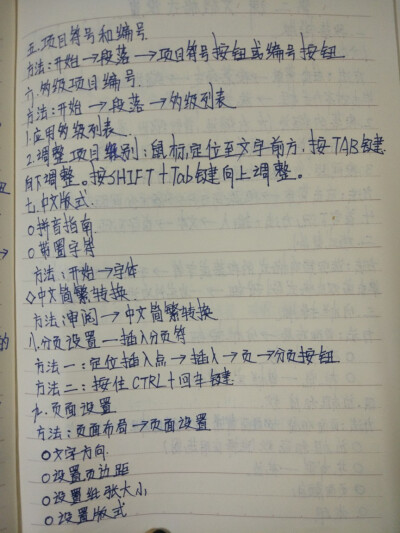 五.项目符号和编号
方法:开始→段落→项目符号按钮或编号按钮
六.多级项目编号
方法:开始→段落→多级列表
1.应用多级列表
2.调整项目级别:鼠标定位至文字前方,按TAB键
向下调整。按SHIFT+Tab键向上调整。
七.中文版式
○拼音指南
○带置字符
方法:开始→字体
◇中文简繁转换
方法:审阅→中文简繁转换
八.分页设置—插入分页符
方法一:定位插入点→插入→页→分页按钮
方法二:按住CTRL+回车键
九.页面设置
方法:页面布局→页面设置
○文字方向
○设置页边距
○设置纸张大小
○设置版式